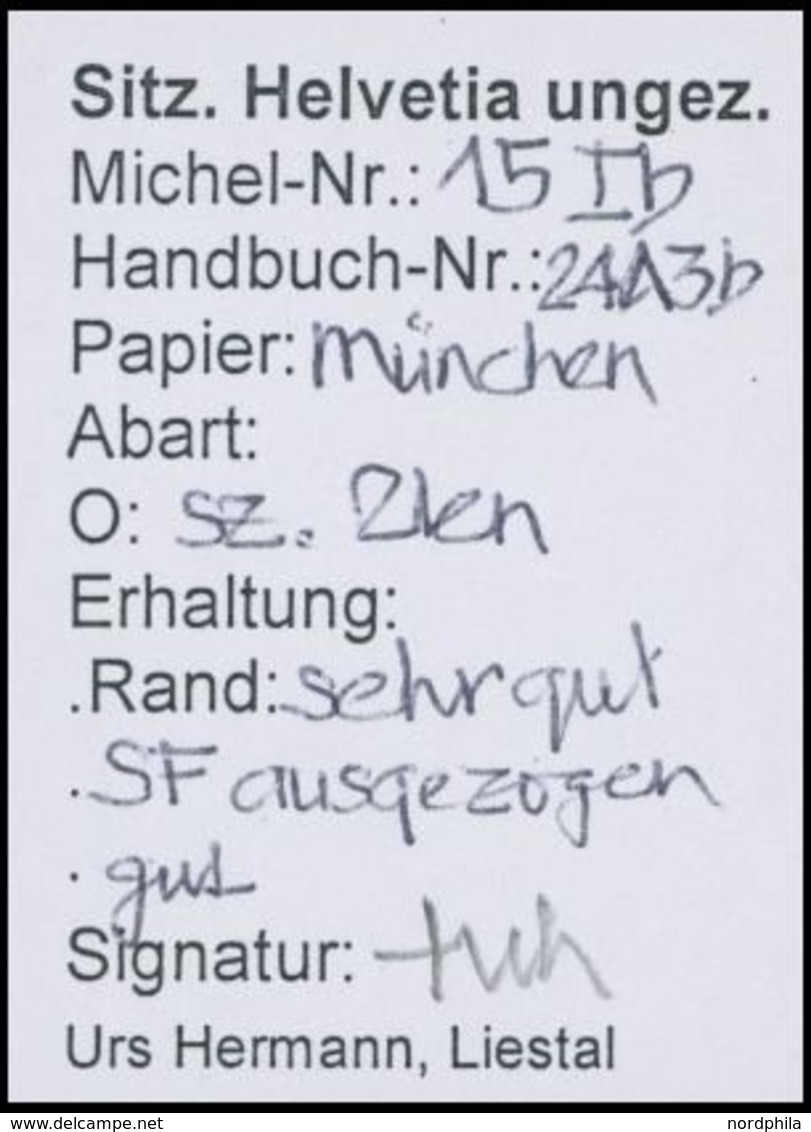 Sitz. Helvetia ungez.
Michel-Nr.: 15 Ib
Handbuch-Nr.: 24A3b
Papier: München
Abart:
O: sz.
Erhaltung:
.Rand: sehr gut
. SF ausgezogen
. gut
Signatur:
Urs Hermann, Liestal
www.delcampe.net
nordphila